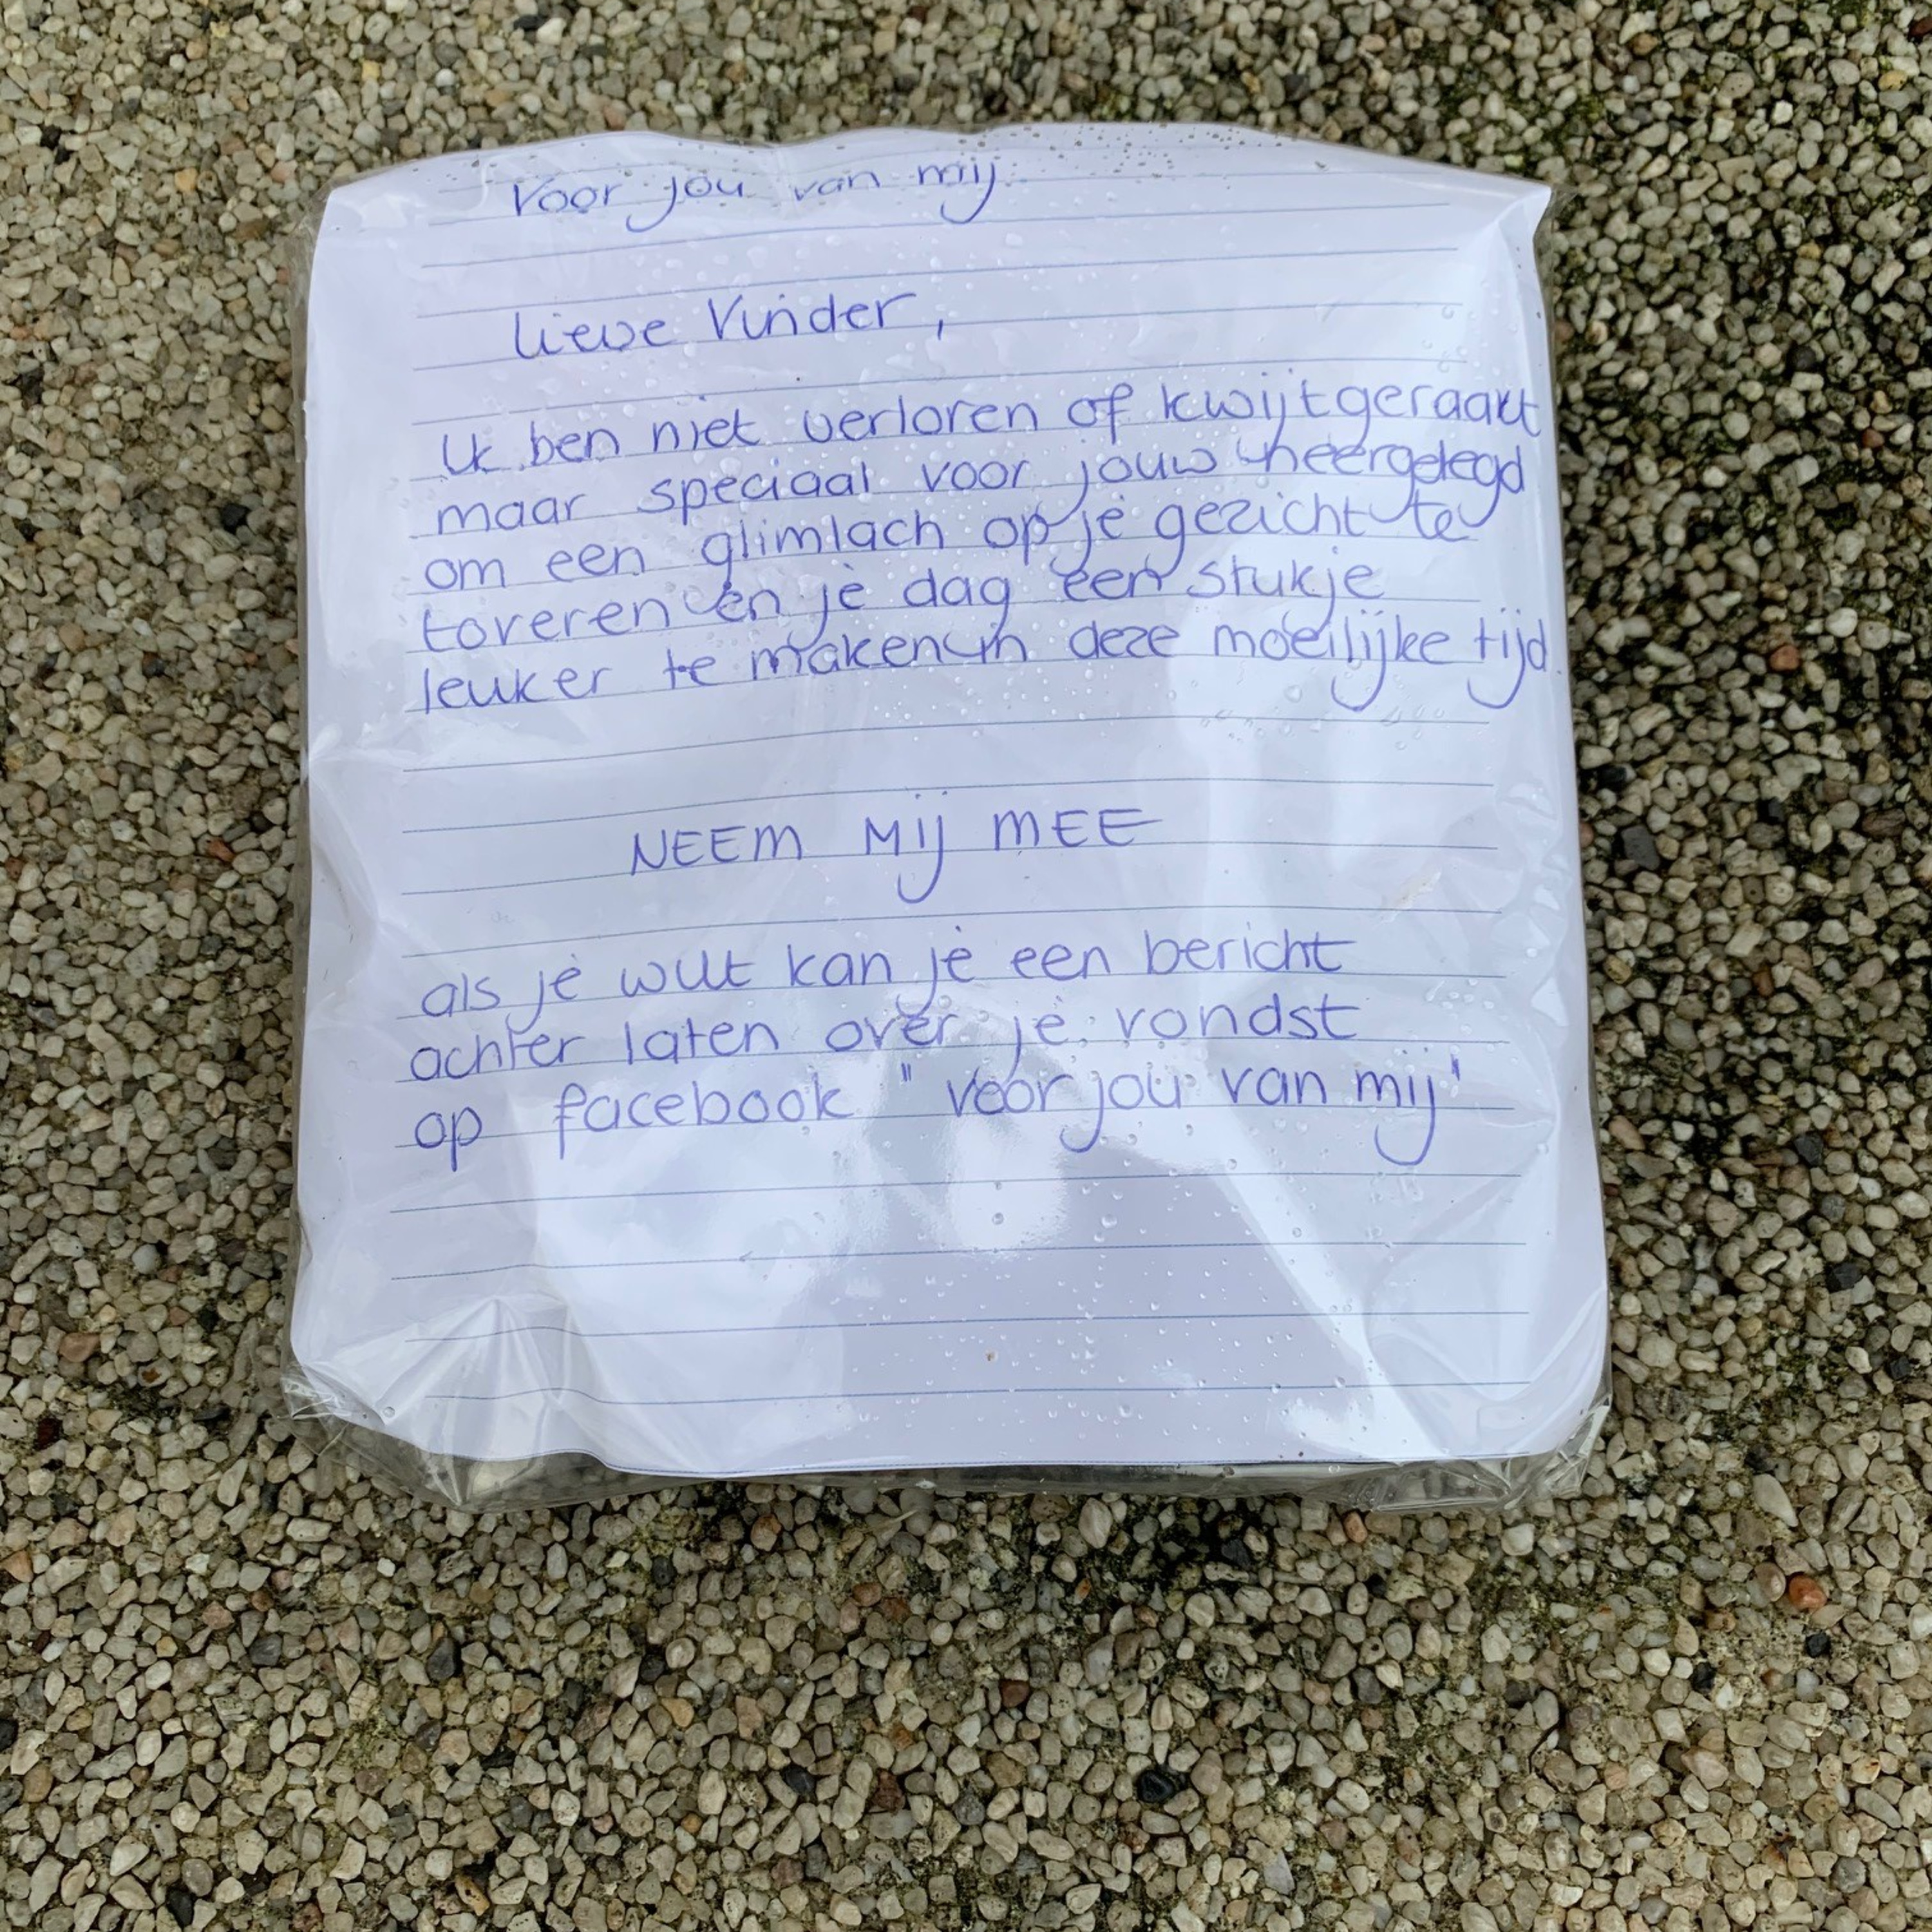 Voor jou van mij
Lieve Vinder,
Ik ben niet verloren of kwijtgeraakt
maar speciaal voor jouw neergelegd
om een glimlach op je gezicht te
toveren en je dag een stukje
leuker te maken in deze moeilijke tijd.
NEEM MIJ MEE
als je wilt kan je een bericht
achter laten over je vondst
op facebook "voor jou van mij"